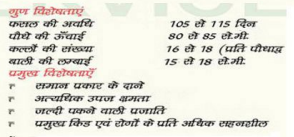 गुण विशेषताएँ
फसल की अवधि 105 से 115 दिन
पौधे की ऊँचाई 80 से 85 से.मी.
कल्लों की संख्या 16 से 18 (प्रति पौधाद्ध
बाली की लम्बाई 15 से 18 से.मी.
प्रमुख विशेषताएँ
समान प्रकार के दाने
अत्यधिक उपज क्षमता
जल्दी पकने वाली प्रजाति
प्रमुख किड़ एवं रोगों के प्रति अधिक सहनशील